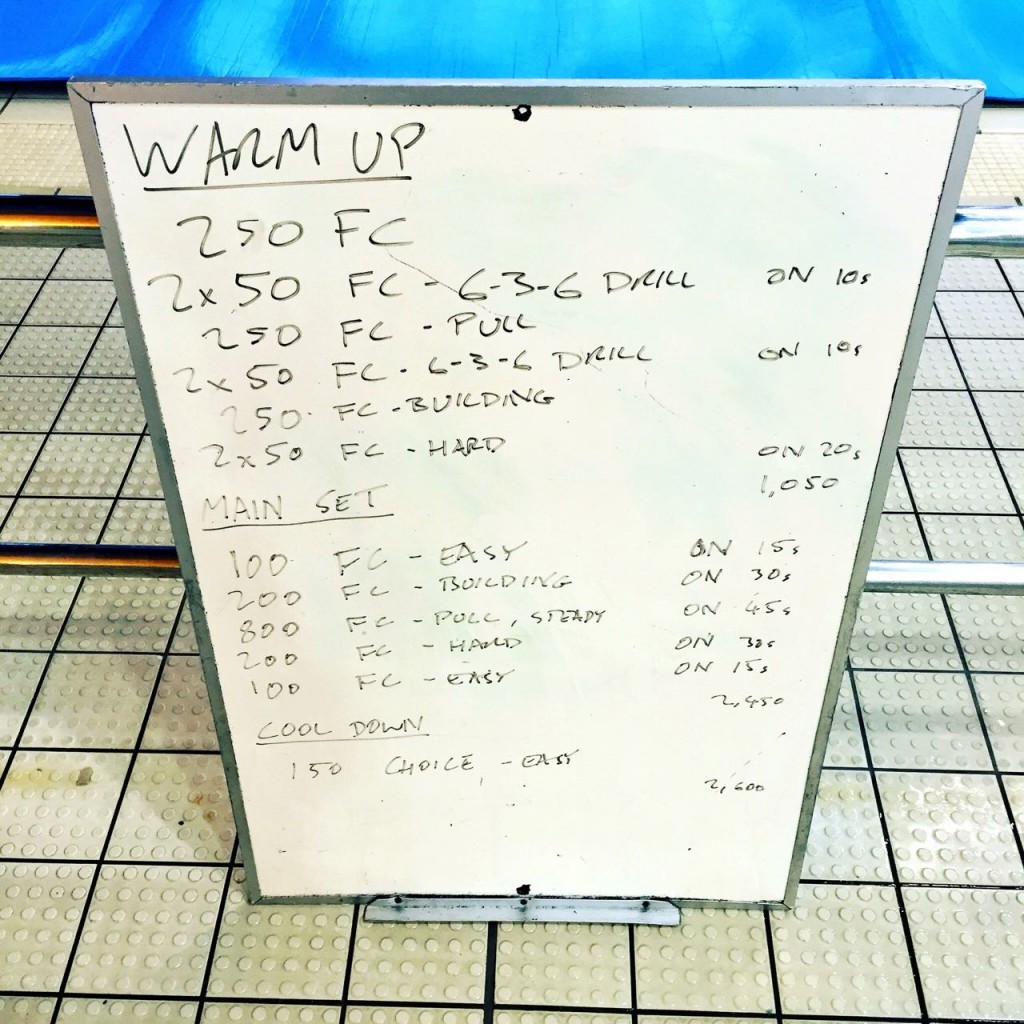 WARM UP
250 FC
2x50 FC - 6-3-6 DRILL ON 10s
250 FC - PULL
2x50 FC - 6-3-6 DRILL ON 10s
250 FC - BUILDING
2x50 FC - HARD ON 20s
1,050
MAIN SET
100 FC - EASY ON 15s
200 FC - BUILDING ON 30s
800 FC - PULL, STEADY ON 45s
200 FC - HARD ON 30s
100 FC - EASY ON 15s
2,450
COOL DOWN
150 CHOICE - EASY
2,600